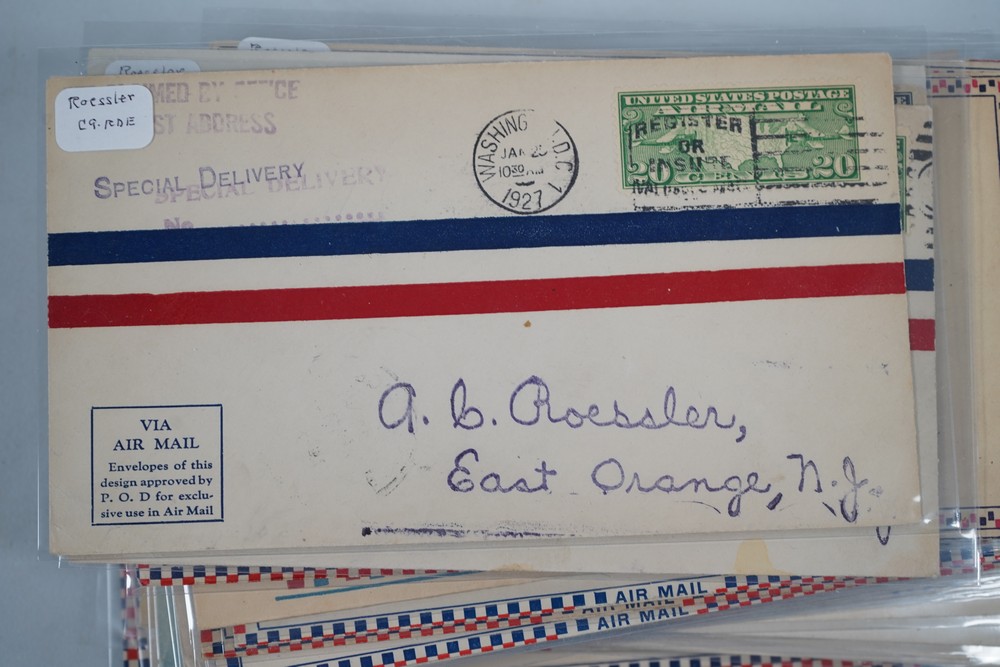 Roessler
Roessler
C9-RDE
MED BY
ST ADDRESS
SPECIAL DELIVERY
SPECIAL DELIVERY
No
WASHING D.C. 1
JAN 25
10 30 AM
1927
UNITED STATES POSTAGE
AIR MAIL
20 20
REGISTER
OR
INSURE
VIA
AIR MAIL
Envelopes of this
design approved by
P. O. D for exclu-
sive use in Air Mail
A. C. Roessler,
East Orange, N.J.
AIR MAIL
AIR MAIL
AIR MAIL